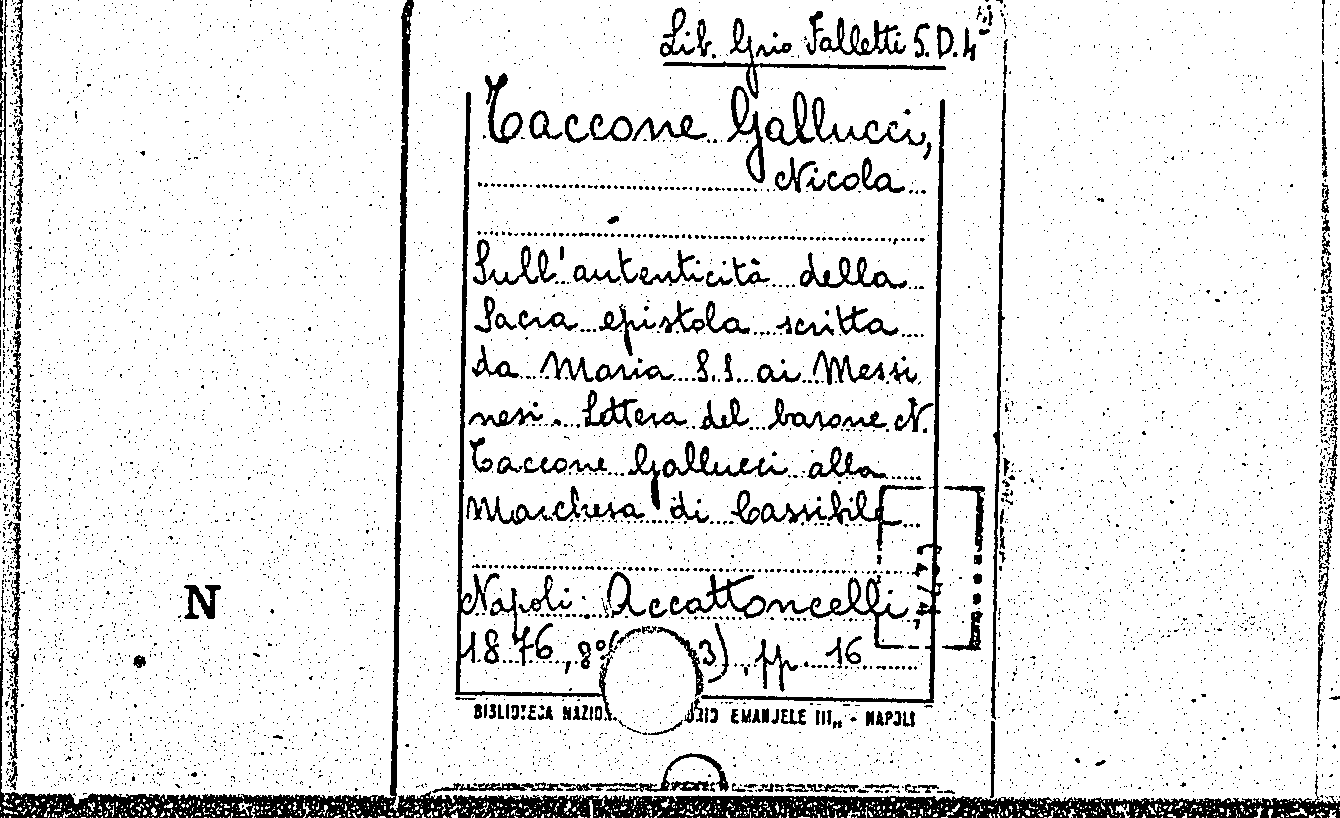 Lib. Grio Falletti S.D.4
Taccone Gallucci,
Nicola
Sull'autenticità della
Sacra epistola scritta
da Maria S.S. ai Messi
nesi. Lettera del barone N.
Taccone Gallucci alla
Marchesa di Cassibile
Napoli. Accattoncelli,
1876, 8° 3), pp. 16
BIBLIOTECA EMANUELE III„ - NAPOLI
N